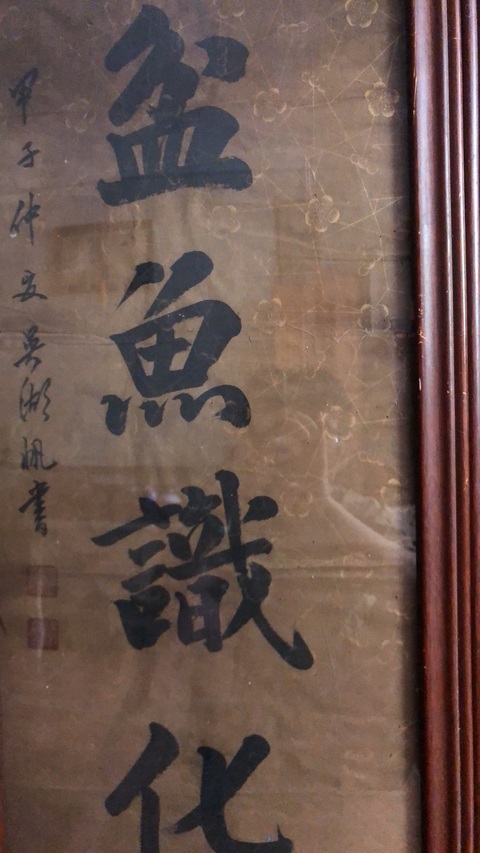 盆魚識化
甲子仲夏吳湖帆書